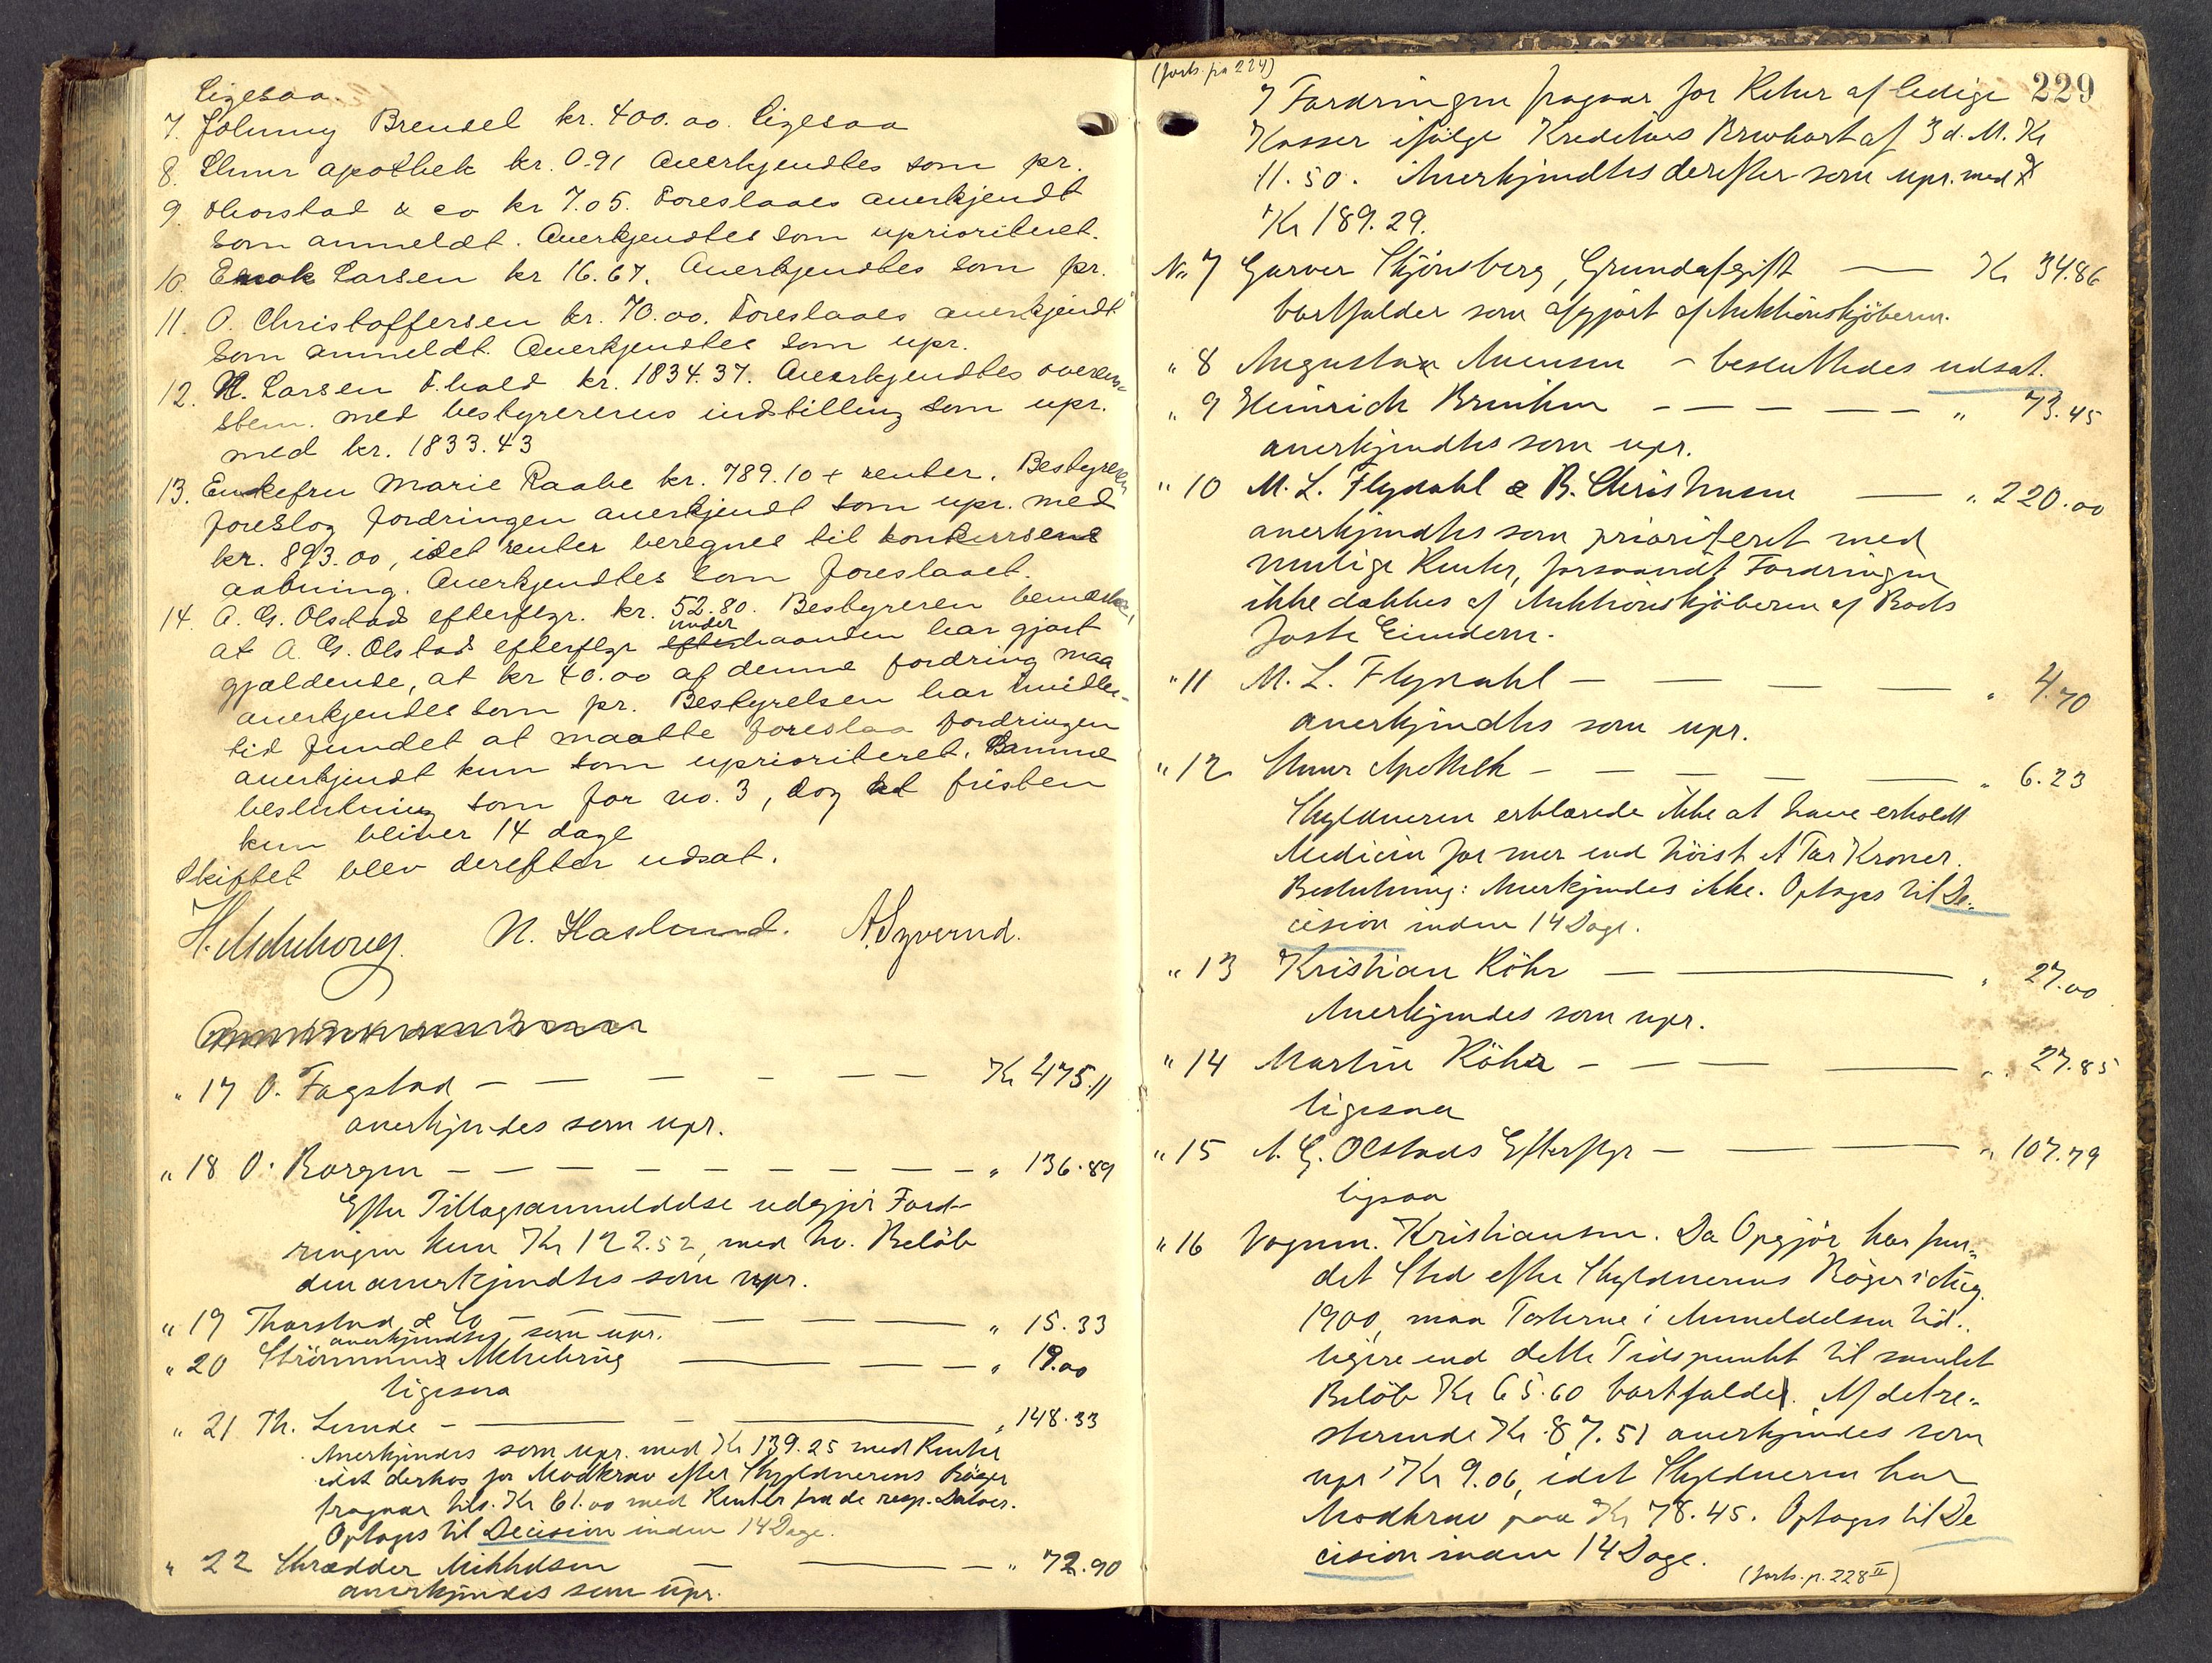 ligesaa.
7. Johnny Breusel kr. 400.00. ligesaa
8. Elmur apothek kr. 0.91 Anerkjendtes som pr.
9. Thorstad & co kr 7.05. Foreslaaes anerkjendt
som anmeldt. Anerkjendtes som uprioriteret.
10. Enok Larsen kr 16.67. Anerkjendtes som pr.
11. O. Christoffersen kr. 70.00. Foreslaaes anerkjendt
som anmeldt. Anerkjendtes som upr.
12. N. Larsen F.hald kr. 1834.37. Anerkjendtes overens-
stem. med bestyrerens indstilling som upr.
med kr. 1833.43
13. Enkefru Marie Raabe kr. 789.10 + renter. Bestyreren
foreslog fordringen anerkjendt som upr. med
kr. 893.00, idet renter beregnes til konkursens
aabning. Anerkjendtes som foreslaaet.
14. A. G. Olstads efterflgr. kr. 52.80. Bestyreren bemærker,
at A. G. Olstads efterflgr under haanden har gjort
gjældende, at kr 40.00 af denne fordring maa
anerkjendes som pr. Bestyrelsen har imidler-
tid fundet at maatte foreslaa fordringen
anerkjendt kun som uprioriteret. Samme
beslutning som for no. 3, dog at fristen
kun bliver 14 dage
Skiftet blev derefter udsat.
N. Haslund.
" 17 O. Fagstad — — — Kr 475.11
anerkjendes som upr.
" 18 O. Borgen — — — " 136.89
Efter Tillægsanmeldelse udgjør Ford-
ringen kun Kr 122.52, med hv. Beløb
den anerkjendtes som upr.
" 19 Thorstad & Co — — — " 15.33
anerkjendtes som upr.
" 20 Strömmens — — " 19.00
ligesaa
" 21 Th. Lunde — — — " 148.33
Anerkjendes som upr. med Kr 139.25 med Renter
idet derhos for Modkrav efter Skyldnerens Bøger
fragaar tils. Kr 61.00 med Renter fra de resp. Datoer.
Optages til Decision inden 14 Dage.
" 22 Skrædder Mikkelsen — — " 72.90
anerkjendes som upr.
(forts. fra 224) 229
7 Fordringen fragaar for Retur af ledige
Kasser ifølge Kreditors Brevkort af 3 d. M. Kr
11.50. Anerkjendtes derefter som upr. med
Kr 189.29.
No 7 Garver Skjönsberg, Grundafgift — Kr 34.86
bortfalder som afgjort af Auktionskjøberen.
" 8 Augusta – besluttedes udsat.
" 9 Heinrich — — — " 73.45
anerkjendtes som upr.
" 10 M. L. Flydahl & B. Christensen — " 220.00
anerkjendtes som prioriteret med
mulige Renter, forsaavidt Fordringen
ikke dækkes af Auktionskjøberen af Boets
faste Eiendom.
" 11 M. L. Flydahl — — — " 4.70
anerkjendtes som upr.
" 12 Elmur Apothek — — — " 6.23
Skyldneren erklærede ikke at have erholdt
Medicin for mer end høist et Par Kroner.
Beslutning: Anerkjendes ikke. Optages til De-
cision inden 14 Dage.
" 13 Kristian Köhr — — " 27.00
Anerkjendes som upr.
" 14 Martin Köhr — — — " 27.85
ligesaa
" 15 A. G. Olstads Efterflgr — — " 107.79
ligesaa
" 16 Vognm. Kristiansen. Da Opgjör har fun-
det Sted efter Skyldnerens Bøger i Aug.
1900, maa Posterne i Anmeldelsen tid-
ligere end dette Tidspunkt til samlet
Beløb Kr 65.60 bortfalde. Af det re-
sterende Kr. 87.51 anerkjendes som
upr. Kr 9.06, idet Skyldneren har
Modkrav paa Kr 78.45. Optages til De
cision inden 14 Dage.
(forts. p. 228 II)